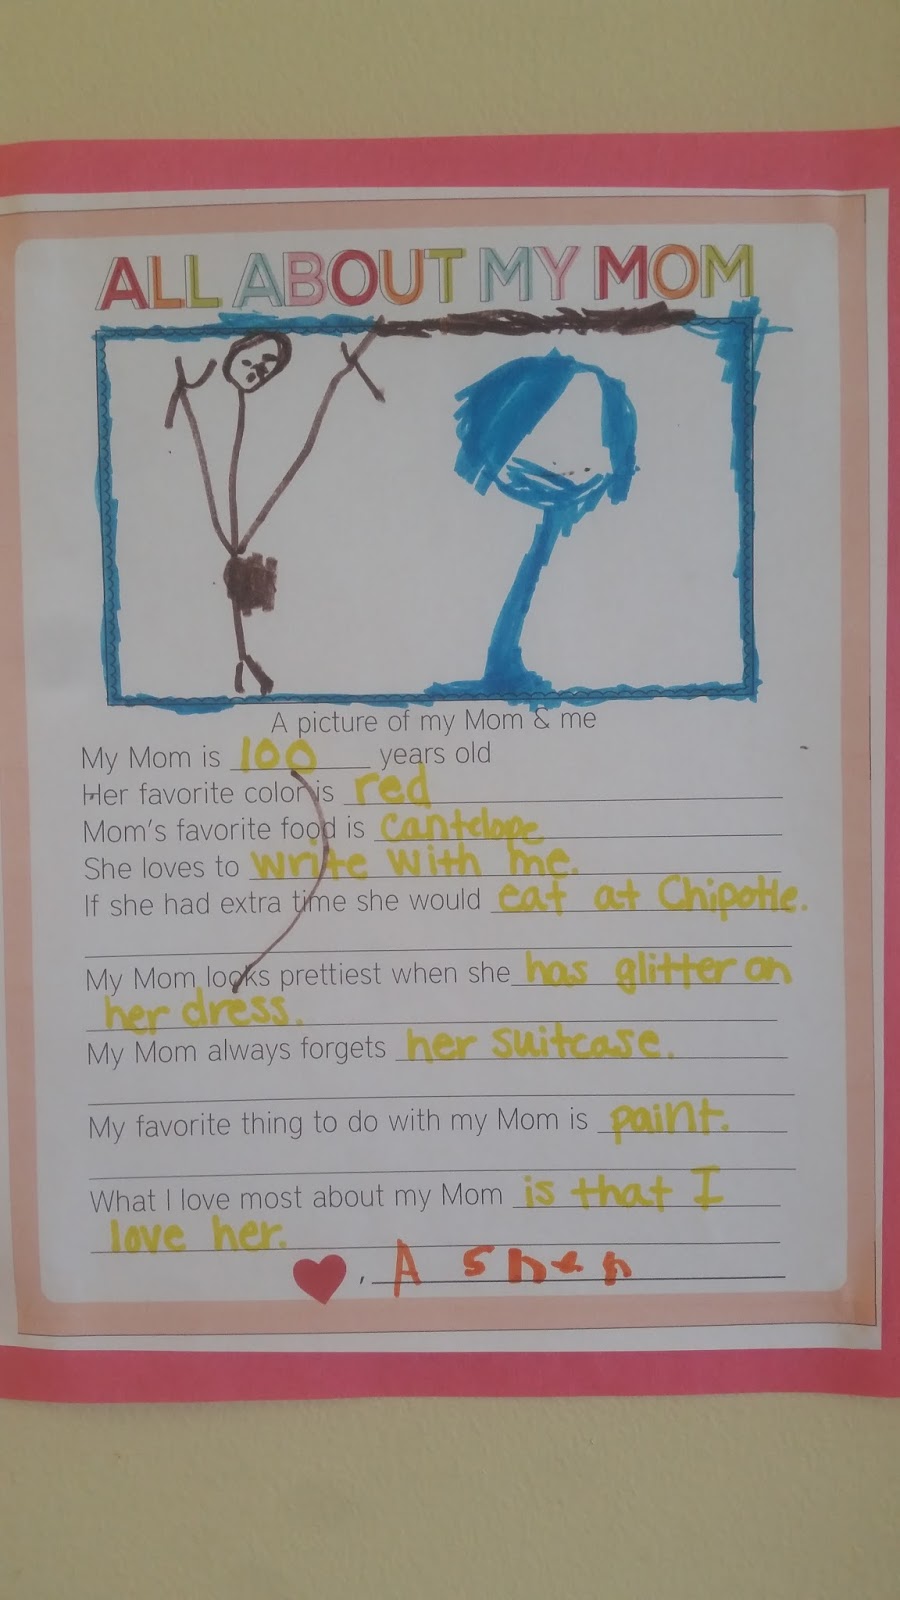 ALL ABOUT MY MOM
A picture of my Mom & me
My Mom is 100 years old
Her favorite color is red
Mom's favorite food is cantelope
She loves to write with me.
If she had extra time she would eat at Chipotle.
My Mom looks prettiest when she has glitter on
her dress.
My Mom always forgets her suitcase.
My favorite thing to do with my Mom is paint.
What I love most about my Mom is that I
love her.
, Ashen